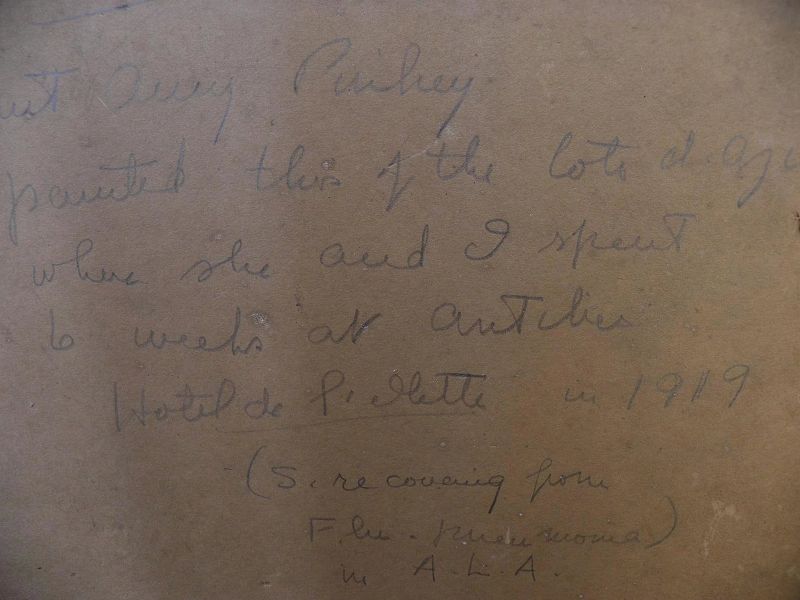 painted this of the Cote d.Azu
where she and I spent
6 weeks at Antibes
Hotel de l'Ilette in 1919
(S. recovering from
Flu. pneumonia)
in A.L.A.